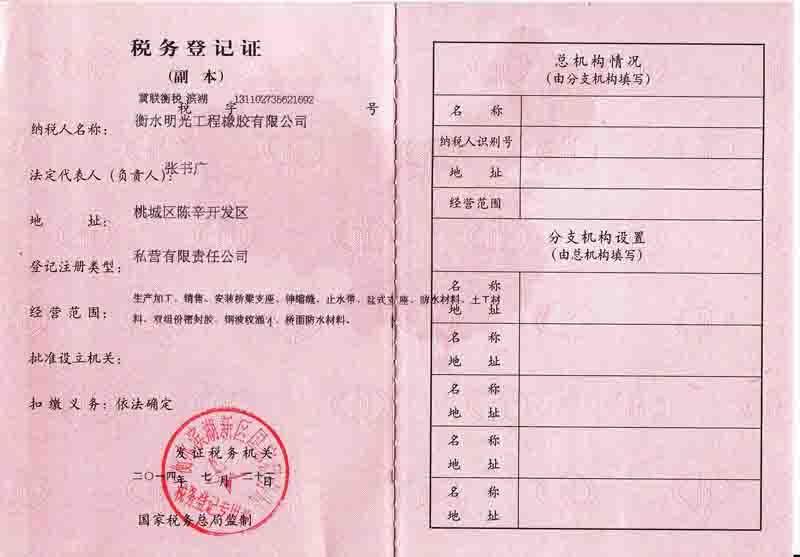 税务登记证
(副本)
冀联衡税 滨湖 131102735621692
税 字 号
纳税人名称: 衡水明光工程橡胶有限公司
法定代表人(负责人): 张书广
地 址: 桃城区陈辛开发区
登记注册类型: 私营有限责任公司
经营范围: 生产加工、销售、安装桥梁支座、伸缩缝、止水带、盆式支座、防水材料、土工材
料、双组份密封胶、桥面防水材料。
批准设立机关:
扣缴义务: 依法确定
发证税务机关
二〇一四年 七月 二十一日
国家税务总局监制
总机构情况
(由分支机构填写)
名 称
纳税人识别号
地 址
经营范围
分支机构设置
(由总机构填写)
名 称
地 址
名 称
地 址
名 称
地 址
名 称
地 址
名 称
地 址